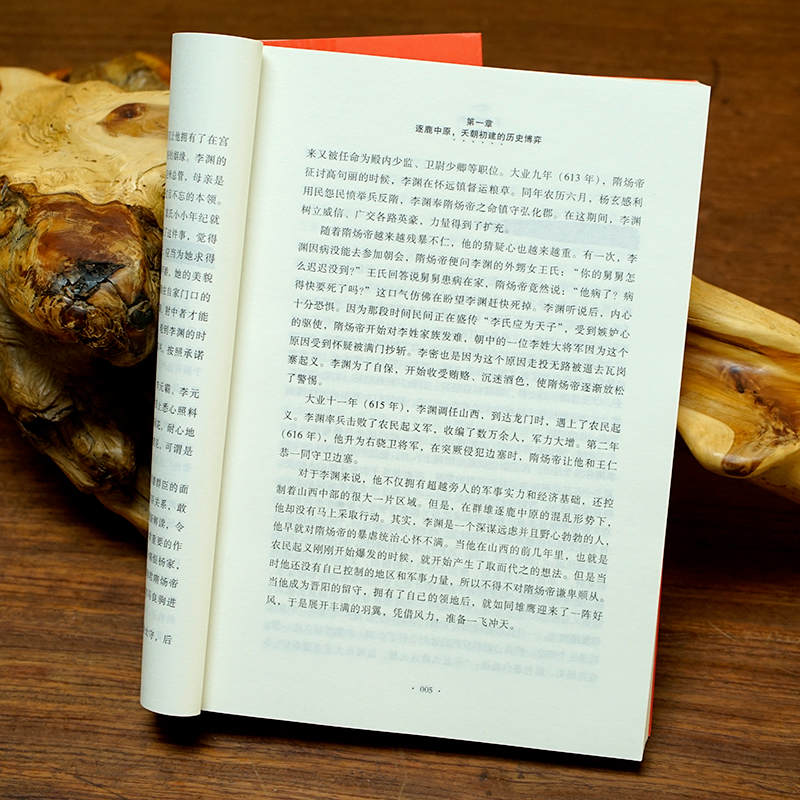 上他拥有了在宫
的姻缘。李渊的
州总管，母亲是
目不忘的本领。
氏小小年纪就
了这件事，觉得
应当为她求得
妻，她的美貌
在自家门口的
射中者才能
到李渊的时
不，按照承诺
李元霸、李元
上悉心照料
花，耐心地
，可谓是
群臣的面
关系，敢
解读，令
重要的作
杨家，
隋炀帝
良驹进
太守，后
第一章
逐鹿中原，天朝初建的历史博弈
来又被任命为殿内少监、卫尉少卿等职位。大业九年（613 年），隋炀帝
征讨高句丽的时候，李渊在怀远镇督运粮草。同年农历六月，杨玄感利
用民怨民愤举兵反隋，李渊奉隋炀帝之命镇守弘化郡。在这期间，李渊
树立威信、广交各路英豪，力量得到了扩充。
随着隋炀帝越来越残暴不仁，他的猜疑心也越来越重。有一次，李
渊因病没能去参加朝会，隋炀帝便问李渊的外甥女王氏：“你的舅舅怎
么迟迟没到？”王氏回答说舅舅患病在家，隋炀帝竟然说：“他病了？病
得快要死了吗？”这口气仿佛在盼望李渊赶快死掉。李渊听说后，内心
十分恐惧。因为那段时间民间正在盛传“李氏应为天子”，受到嫉妒心
的驱使，隋炀帝开始对李姓家族发难，朝中的一位李姓大将军因为这个
原因受到怀疑被满门抄斩。李密也是因为这个原因走投无路被逼去瓦岗
寨起义。李渊为了自保，开始收受贿赂、沉迷酒色，使隋炀帝逐渐放松
了警惕。
大业十一年（615 年），李渊调任山西，到达龙门时，遇上了农民起
义。李渊率兵击败了农民起义军，收编了数万余人，军力大增。第二年
（616 年），他升为右骁卫将军，在突厥侵犯边塞时，隋炀帝让他和王仁
恭一同守卫边塞。
对于李渊来说，他不仅拥有超越旁人的军事实力和经济基础，还控
制着山西中部的很大一片区域。但是，在群雄逐鹿中原的混乱形势下，
他却没有马上采取行动。其实，李渊是一个深谋远虑并且野心勃勃的人，
他早就对隋炀帝的暴虐统治心怀不满。当他在山西的前几年里，也就是
农民起义刚刚开始爆发的时候，就开始产生了取而代之的想法。但是当
时他还没有自己控制的地区和军事力量，所以不得不对隋炀帝谦卑顺从。
当他成为晋阳的留守，拥有了自己的领地后，就如同雄鹰迎来了一阵好
风，于是展开丰满的羽翼，凭借风力，准备一飞冲天。
· 005 ·